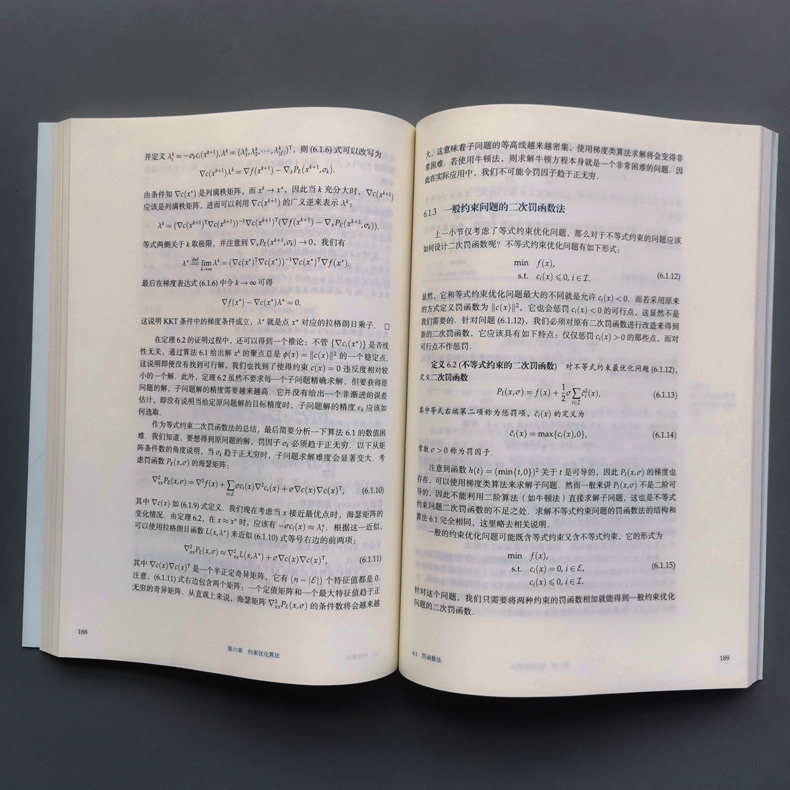 并定义 λᵢᵏ = −σₖcᵢ(xᵏ⁺¹), λᵏ = (λ₁ᵏ, λ₂ᵏ, ⋯, λᵏ_|ℰ|)ᵀ, 则 (6.1.6) 式可以改写为
∇c(xᵏ⁺¹)λᵏ = ∇f(xᵏ⁺¹) − ∇ₓP_E(xᵏ⁺¹, σₖ).
由条件知 ∇c(x*) 是列满秩矩阵, 而 xᵏ → x*, 因此当 k 充分大时, ∇c(xᵏ⁺¹)
应该是列满秩矩阵, 进而可以利用 ∇c(xᵏ⁺¹) 的广义逆来表示 λᵏ:
λᵏ = (∇c(xᵏ⁺¹)ᵀ∇c(xᵏ⁺¹))⁻¹∇c(xᵏ⁺¹)ᵀ(∇f(xᵏ⁺¹) − ∇ₓP_E(xᵏ⁺¹, σₖ)).
等式两侧关于 k 取极限, 并注意到 ∇ₓP_E(xᵏ⁺¹, σₖ) → 0, 我们有
λ* ≝ lim_{k→∞} λᵏ = (∇c(x*)ᵀ∇c(x*))⁻¹∇c(x*)ᵀ∇f(x*),
最后在梯度表达式 (6.1.6) 中令 k → ∞ 可得
∇f(x*) − ∇c(x*)λ* = 0.
这说明 KKT 条件中的梯度条件成立, λ* 就是点 x* 对应的拉格朗日乘子. □
在定理 6.2 的证明过程中, 还可以得到一个推论: 不管 {∇cᵢ(x*)} 是否线
性无关, 通过算法 6.1 给出解 xᵏ 的聚点总是 ϕ(x) = ‖c(x)‖² 的一个稳定点.
这说明即便没有找到可行解, 我们也找到了使得约束 c(x) = 0 违反度相对较
小的一个解. 此外, 定理 6.2 虽然不要求每一个子问题精确求解, 但要获得原
问题的解, 子问题解的精度需要越来越高. 它并没有给出一个非渐进的误差
估计, 即没有说明当给定原问题解的目标精度时, 子问题解的精度 εₖ 应该如
何选取.
作为等式约束二次罚函数法的总结, 最后简要分析一下算法 6.1 的数值困
难. 我们知道, 要想得到原问题的解, 罚因子 σₖ 必须趋于正无穷. 以下从矩
阵条件数的角度说明, 当 σₖ 趋于正无穷时, 子问题求解难度会显著变大. 考
虑罚函数 P_E(x, σ) 的海瑟矩阵:
∇²ₓₓP_E(x, σ) = ∇²f(x) + ∑_{i∈ℰ} σcᵢ(x)∇²cᵢ(x) + σ∇c(x)∇c(x)ᵀ, (6.1.10)
其中 ∇c(x) 如 (6.1.9) 式定义. 我们现在考虑当 x 接近最优点时, 海瑟矩阵的
变化情况. 由定理 6.2, 在 x ≈ x* 时, 应该有 −σcᵢ(x) ≈ λᵢ*. 根据这一近似,
可以使用拉格朗日函数 L(x, λ*) 来近似 (6.1.10) 式等号右边的前两项:
∇²ₓₓP_E(x, σ) ≈ ∇²ₓₓL(x, λ*) + σ∇c(x)∇c(x)ᵀ, (6.1.11)
其中 ∇c(x)∇c(x)ᵀ 是一个半正定奇异矩阵, 它有 (n − |ℰ|) 个特征值都是 0.
注意, (6.1.11) 式右边包含两个矩阵: 一个定值矩阵和一个最大特征值趋于正
无穷的奇异矩阵. 从直观上来说, 海瑟矩阵 ∇²ₓₓP_E(x, σ) 的条件数将会越来越
188
第六章 约束优化算法
大, 这意味着子问题的等高线越来越密集, 使用梯度类算法求解将会变得非
常困难. 若使用牛顿法, 则求解牛顿方程本身就是一个非常困难的问题. 因
此在实际应用中, 我们不可能令罚因子趋于正无穷.
6.1.3 一般约束问题的二次罚函数法
上一小节仅考虑了等式约束优化问题, 那么对于不等式约束的问题应该
如何设计二次罚函数呢? 不等式约束优化问题有如下形式:
min f(x),
s.t. cᵢ(x) ⩽ 0, i ∈ ℐ. (6.1.12)
显然, 它和等式约束优化问题最大的不同就是允许 cᵢ(x) < 0. 而若采用原来
的方式定义罚函数为 ‖c(x)‖², 它也会惩罚 cᵢ(x) < 0 的可行点, 这显然不是
我们需要的. 针对问题 (6.1.12), 我们必须对原有二次罚函数进行改造来得到
新的二次罚函数, 它应该具有如下特点: 仅仅惩罚 cᵢ(x) > 0 的那些点, 而对
可行点不作惩罚.
定义 6.2 (不等式约束的二次罚函数) 对不等式约束最优化问题 (6.1.12),
定义二次罚函数
P_I(x, σ) = f(x) + ½σ∑_{i∈ℐ} c̃ᵢ²(x), (6.1.13)
其中等式右端第二项称为惩罚项, c̃ᵢ(x) 的定义为
c̃ᵢ(x) = max{cᵢ(x), 0}, (6.1.14)
常数 σ > 0 称为罚因子.
注意到函数 h(t) = (min{t, 0})² 关于 t 是可导的, 因此 P_I(x, σ) 的梯度也
存在, 可以使用梯度类算法来求解子问题. 然而一般来讲 P_I(x, σ) 不是二阶可
导的, 因此不能利用二阶算法 (如牛顿法) 直接求解子问题, 这也是不等式
约束问题二次罚函数的不足之处. 求解不等式约束问题的罚函数法的结构和
算法 6.1 完全相同, 这里略去相关说明.
一般的约束优化问题可能既含等式约束又含不等式约束, 它的形式为
min f(x),
s.t. cᵢ(x) = 0, i ∈ ℰ, (6.1.15)
cᵢ(x) ⩽ 0, i ∈ ℐ.
针对这个问题, 我们只需要将两种约束的罚函数相加就能得到一般约束优化
问题的二次罚函数.
6.1 罚函数法
189